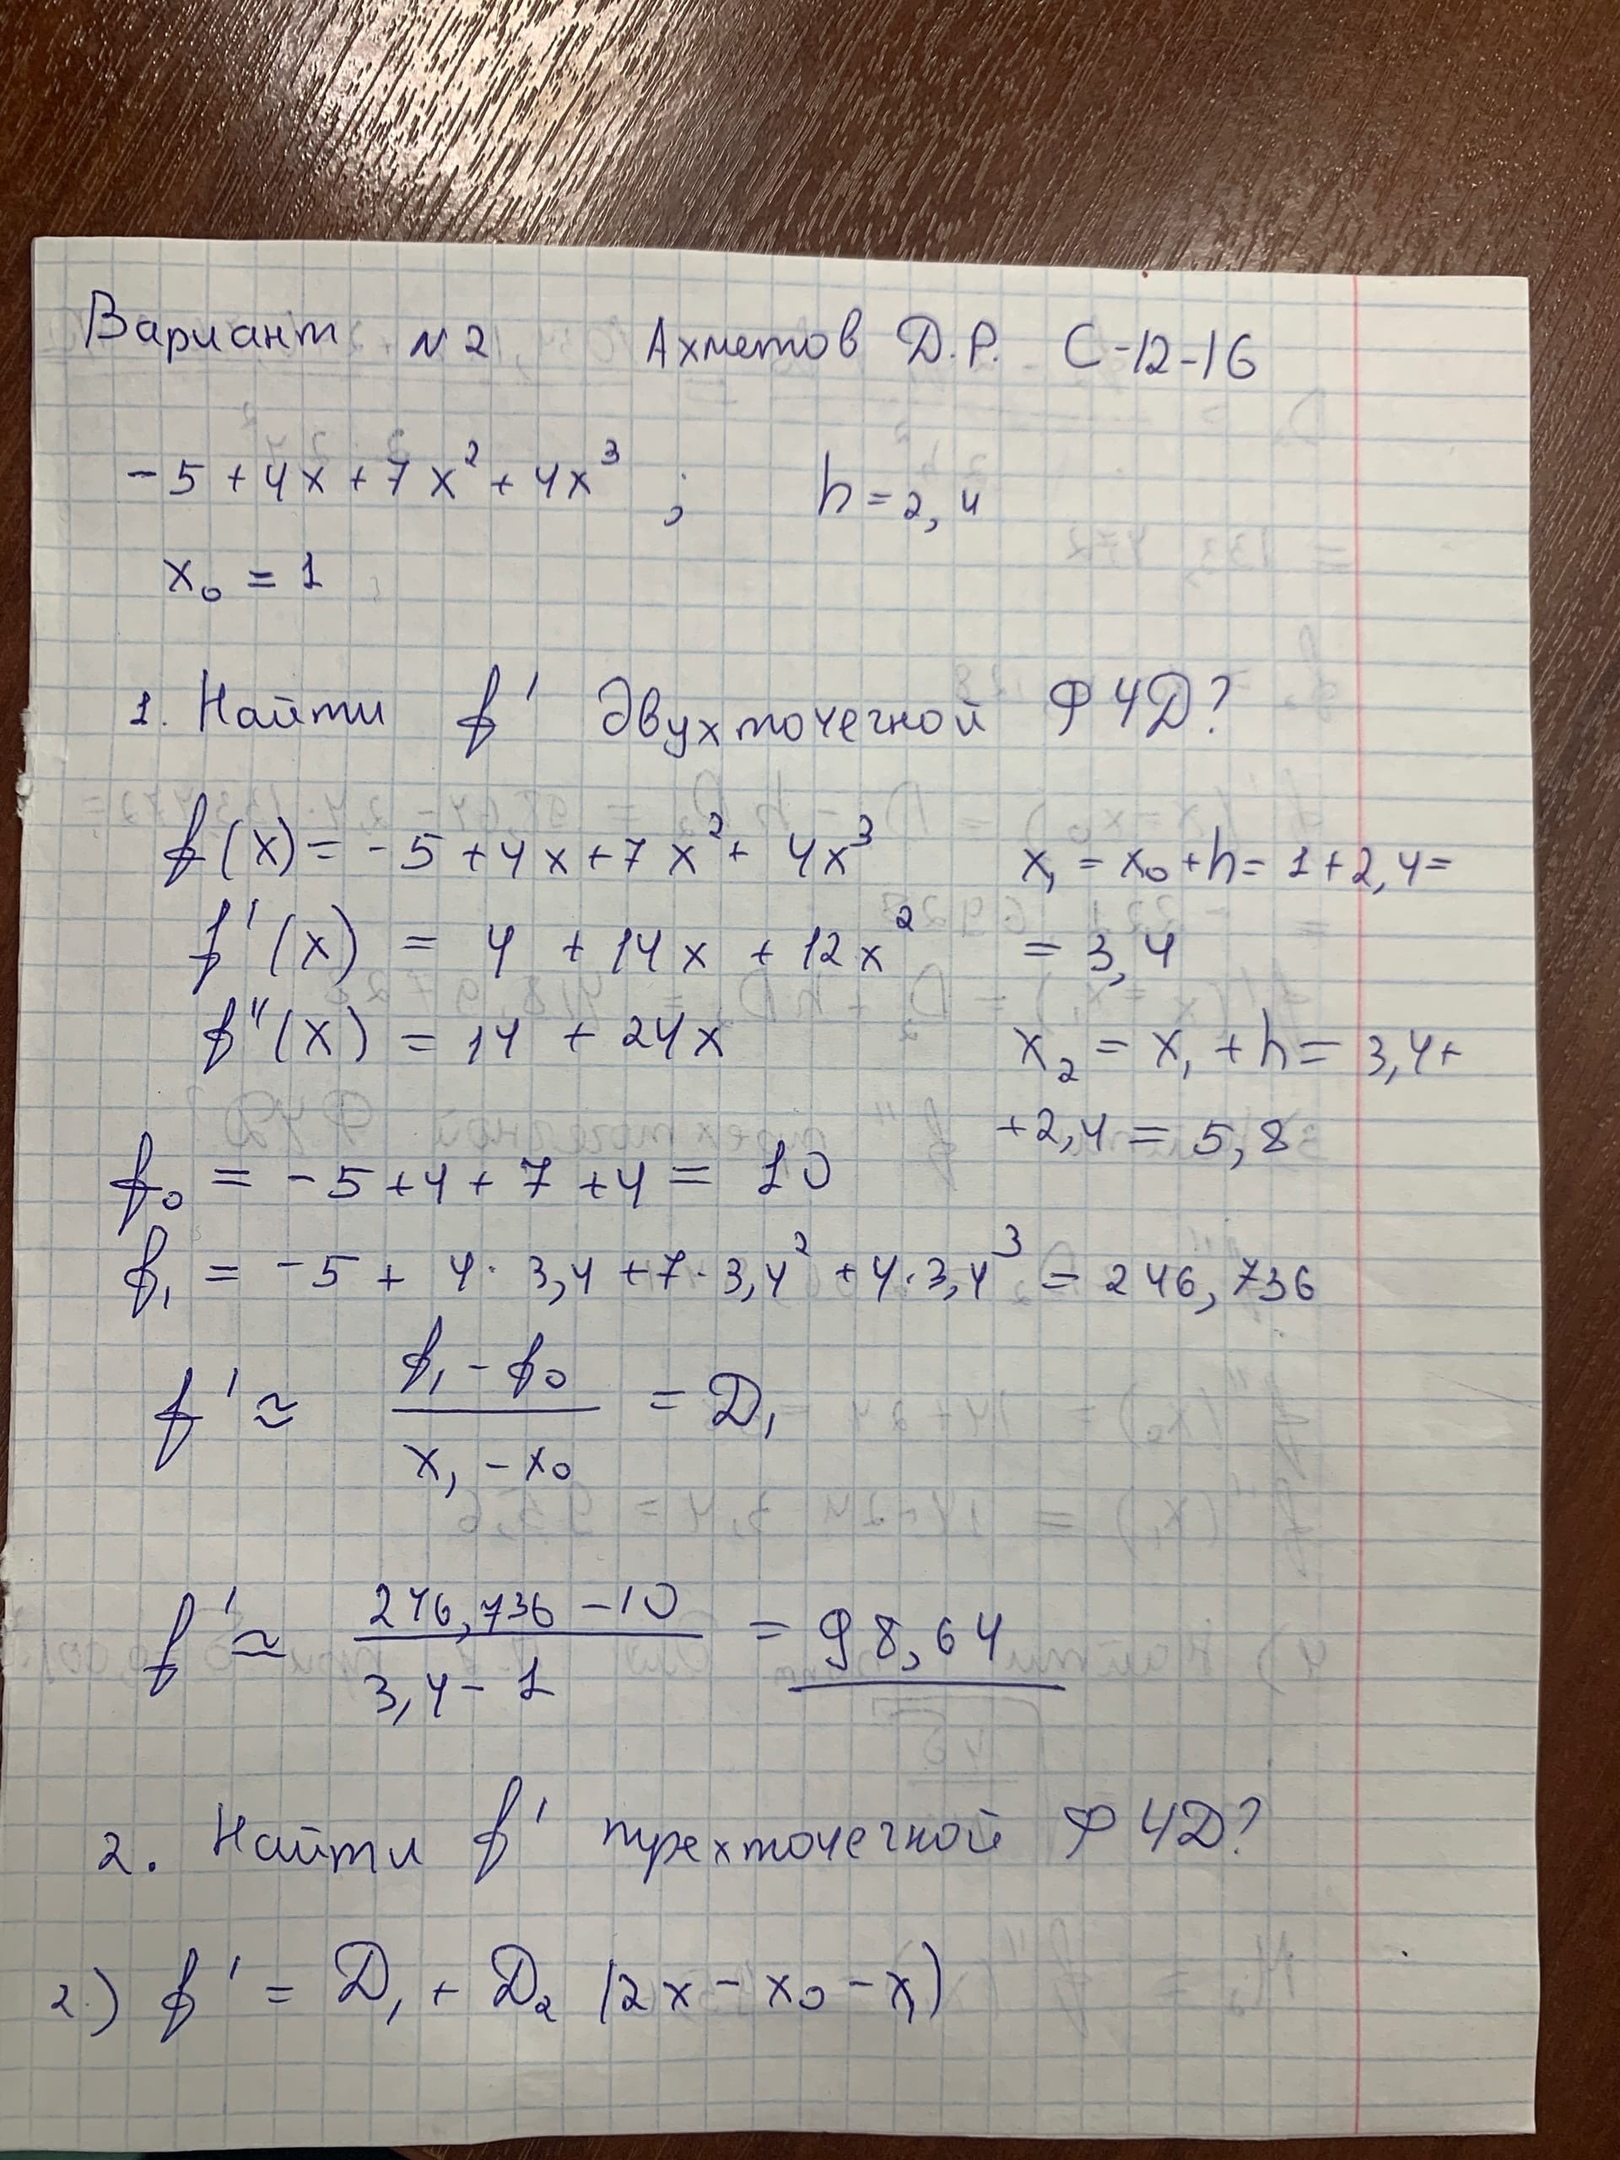 Вариант №2 Ахметов Д.Р. С-12-16
-5+4x+7x²+4x³ ; h=2,4
x₀ = 1
1. Найти f' двухточечной ФЧД?
f(x)=-5+4x+7x²+4x³ x₁=x₀+h=1+2,4=
f'(x) = 4 +14x +12x² = 3,4
f''(x) = 14 + 24x x₂ = x₁ + h = 3,4+
+2,4 = 5,8
f₀ = -5+4+7+4 = 10
f₁ = -5 + 4·3,4+7·3,4²+4·3,4³ = 246,736
f' ≈ (f₁ - f₀)/(x₁ - x₀) = D₁
f' ≈ (246,736 - 10)/(3,4 - 1) = 98,64
2. Найти f' трехточечной ФЧД?
2.) f' = D₁ + D₂ (2x - x₀ - x₁)